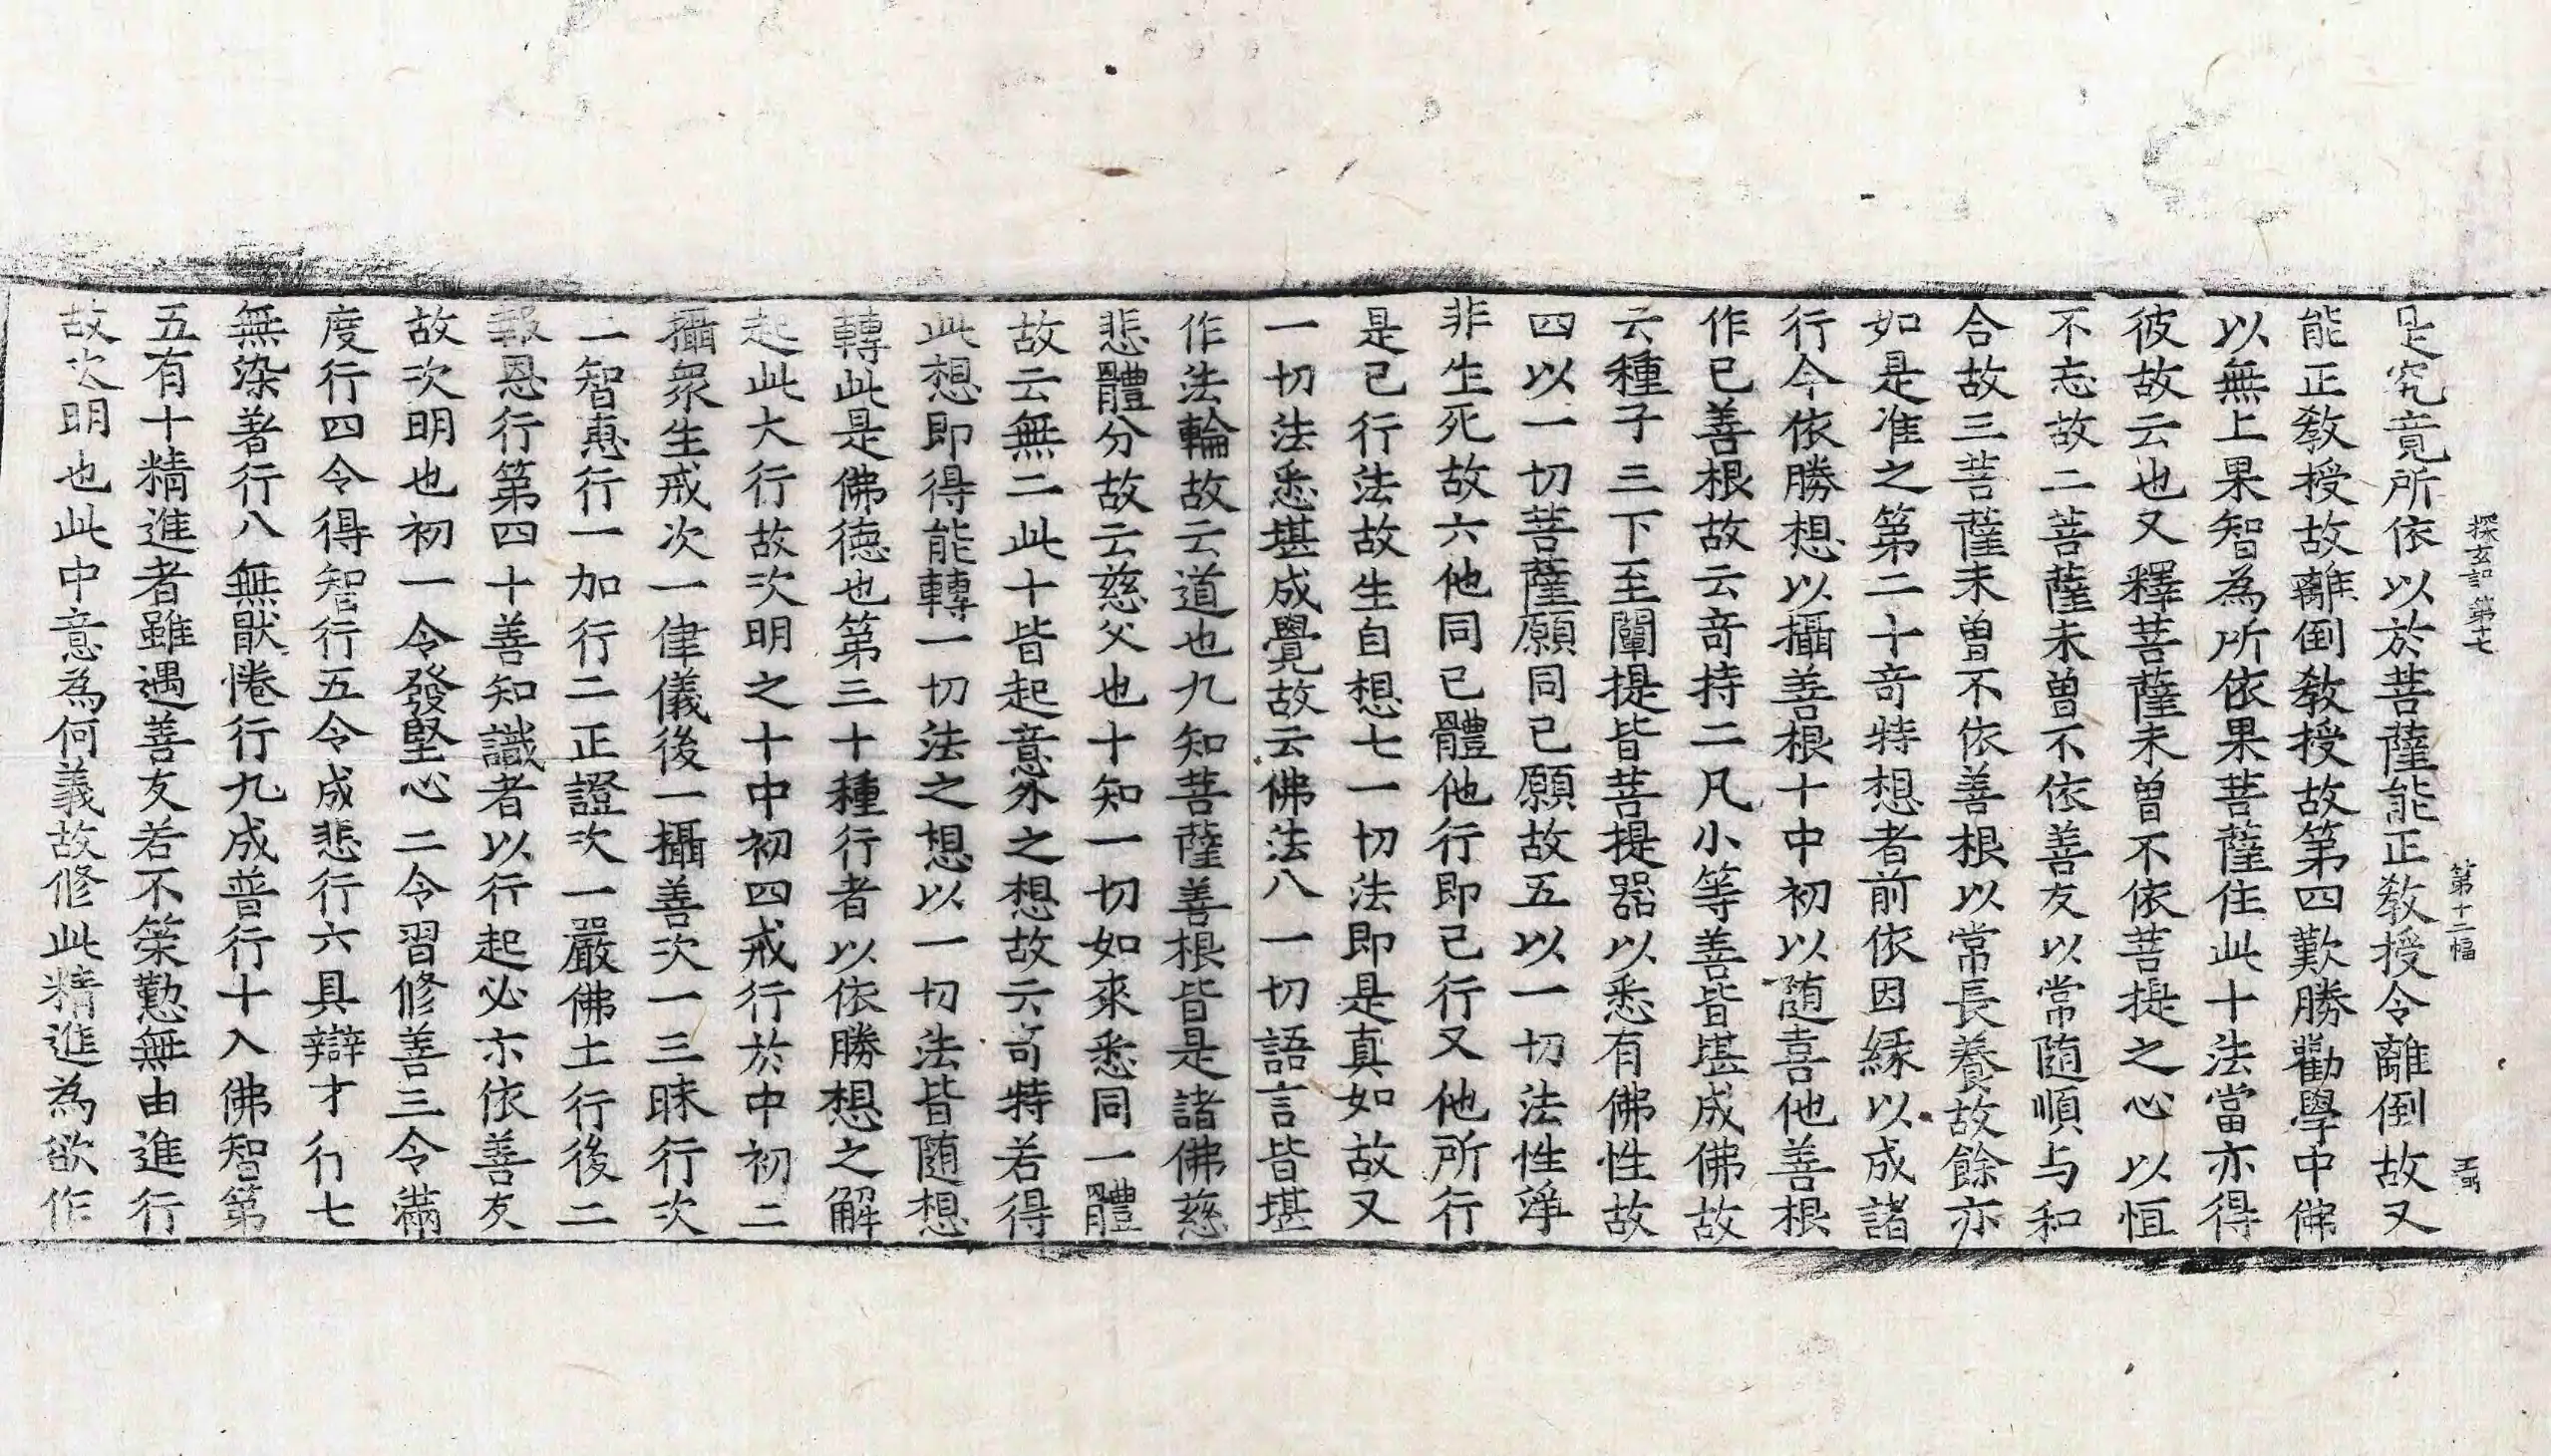 探玄記第十七 第十二幅
是究竟所依以於菩薩能正教授令離倒故又
能正教授故離倒教授故第四歎勝勸學中佛
以無上果智為所依果菩薩住此十法當亦得
彼故云也又釋菩薩未曾不依菩提之心以恒
不忘故二菩薩未曾不依善友以常隨順与和
合故三菩薩未曾不依善根以常長養故餘亦
如是准之第二十竒特想者前依因縁以成諸
行今依勝想以攝善根十中初以随喜他善根
作已善根故云竒持二凡小等善皆堪成佛故
云種子三下至闡提皆菩提器以悉有佛性故
四以一切菩薩願同已願故五以一切法性淨
非生死故六他同已體他行即已行又他所行
是已行法故生自想七一切法即是真如故又
一切法悉堪成覺故云佛法八一切語言皆堪
作法輪故云道也九知菩薩善根皆是諸佛慈
悲體分故云慈父也十知一切如來悉同一體
故云無二此十皆起意外之想故云竒特若得
此想即得能轉一切法之想以一切法皆随想
轉此是佛德也第三十種行者以依勝想之解
起此大行故次明之十中初四戒行於中初二
攝衆生戒次一律儀後一攝善次一三昧行次
二智惠行一加行二正證次一嚴佛土行後二
報恩行第四十善知識者以行起必亦依善友
故次明也初一令發堅心二令習修善三令滿
度行四令得智行五令成悲行六具辯才行七
無染著行八無猒惓行九成普行十入佛智第
五有十精進者雖遇善友若不策懃無由進行
故次明也此中意為何義故修此精進為欲作